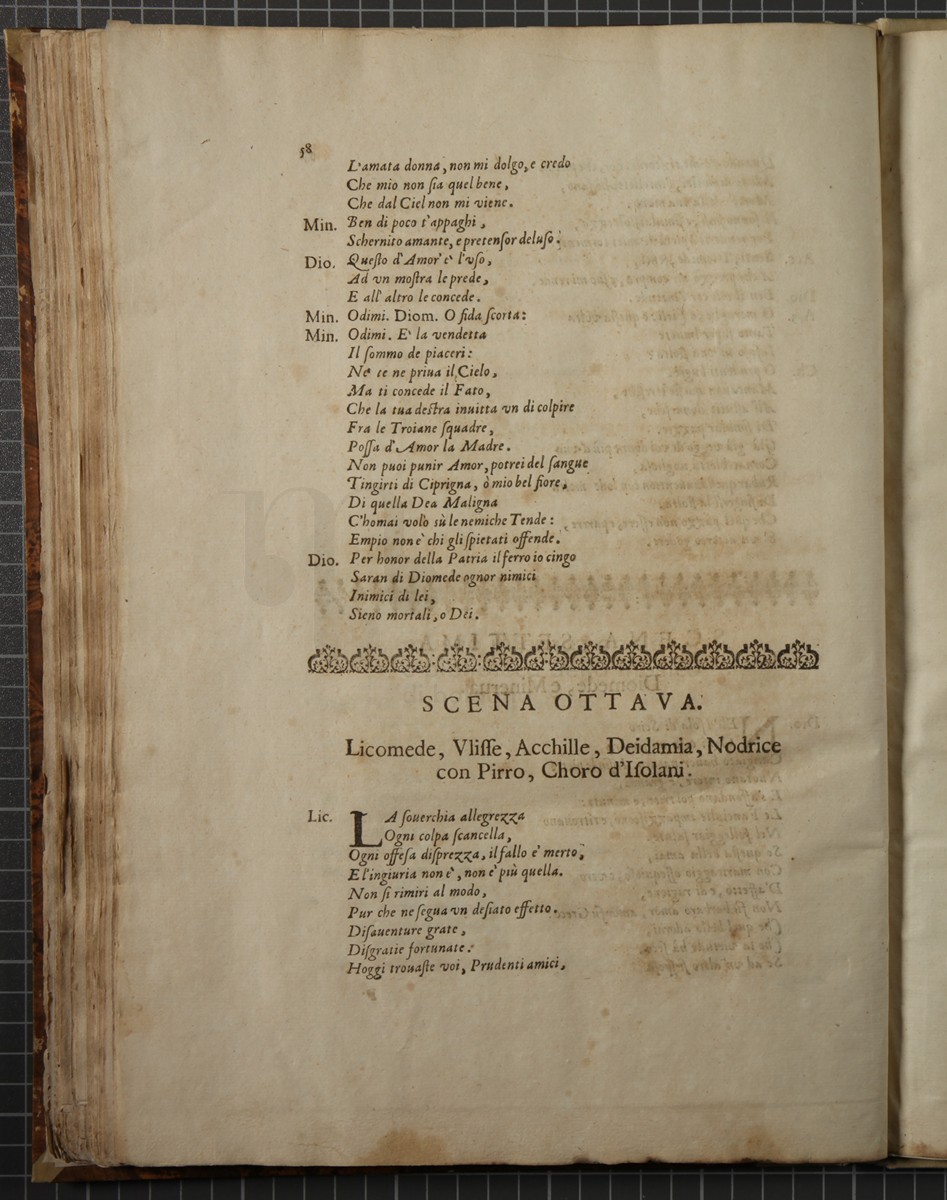 58
L'amata donna, non mi dolgo, e credo
Che mio non ſia quel bene,
Che dal Ciel non mi viene.
Min. Ben di poco t'appaghi,
Schernito amante, e pretenſor deluſo.
Dio. Queſto d'Amor e' l'vſo,
Ad vn moſtra le prede,
E all' altro le concede.
Min. Odimi. Diom. O fida ſcorta:
Min. Odimi. E' la vendetta
Il ſommo de piaceri:
Ne' te ne priua il Cielo,
Ma ti concede il Fato,
Che la tua deſtra inuitta vn di colpire
Fra le Troiane ſquadre,
Poſſa d'Amor la Madre.
Non puoi punir Amor, potrei del ſangue
Tingirti di Ciprigna, ò mio bel fiore,
Di quella Dea Maligna
C'homai volò sù le nemiche Tende:
Empio non e' chi gli ſpietati offende.
Dio. Per honor della Patria il ferro io cingo
Saran di Diomede ognor nimici
Inimici di lei,
Sieno mortali, o Dei.
SCENA OTTAVA.
Licomede, Vliſſe, Acchille, Deidamia, Nodrice
con Pirro, Choro d'Iſolani.
Lic. LA ſouerchia allegrezza
Ogni colpa ſcancella,
Ogni offeſa diſprezza, il fallo e' merto,
E l'ingiuria non e', non e' più quella.
Non ſi rimiri al modo,
Pur che ne ſegua vn deſiato effetto.
Diſauenture grate,
Diſgratie fortunate:
Hoggi trouaſte voi, Prudenti amici,